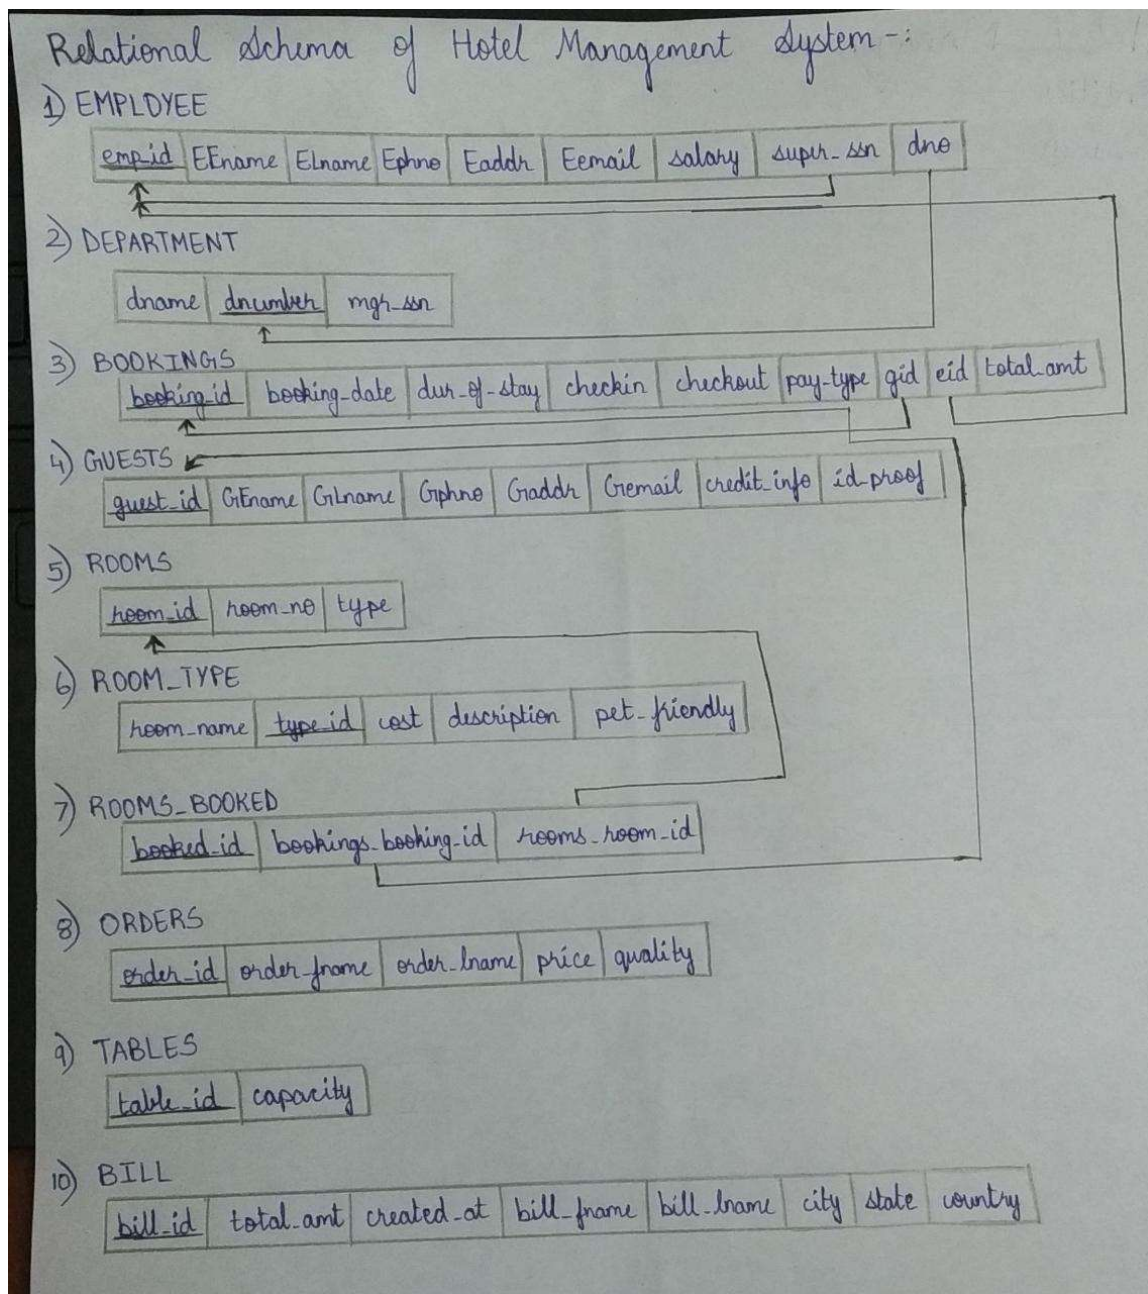 Relational Schema of Hotel Management System-:
1) EMPLOYEE
emp_id EFname Elname Ephno Eaddr Eemail salary super_ssn dno
2) DEPARTMENT
dname dnumber mgr_ssn
3) BOOKINGS
booking_id booking_date dur_of_stay checkin checkout pay_type gid eid total_amt
4) GUESTS
guest_id GFname GLname Gphno Gaddr Gemail credit_info id_proof
5) ROOMS
room_id room_no type
6) ROOM_TYPE
room_name type_id cost description pet_friendly
7) ROOMS_BOOKED
booked_id bookings_booking_id rooms_room_id
8) ORDERS
order_id order_fname order_lname price quality
9) TABLES
table_id capacity
10) BILL
bill_id total_amt created_at bill_fname bill_lname city state country